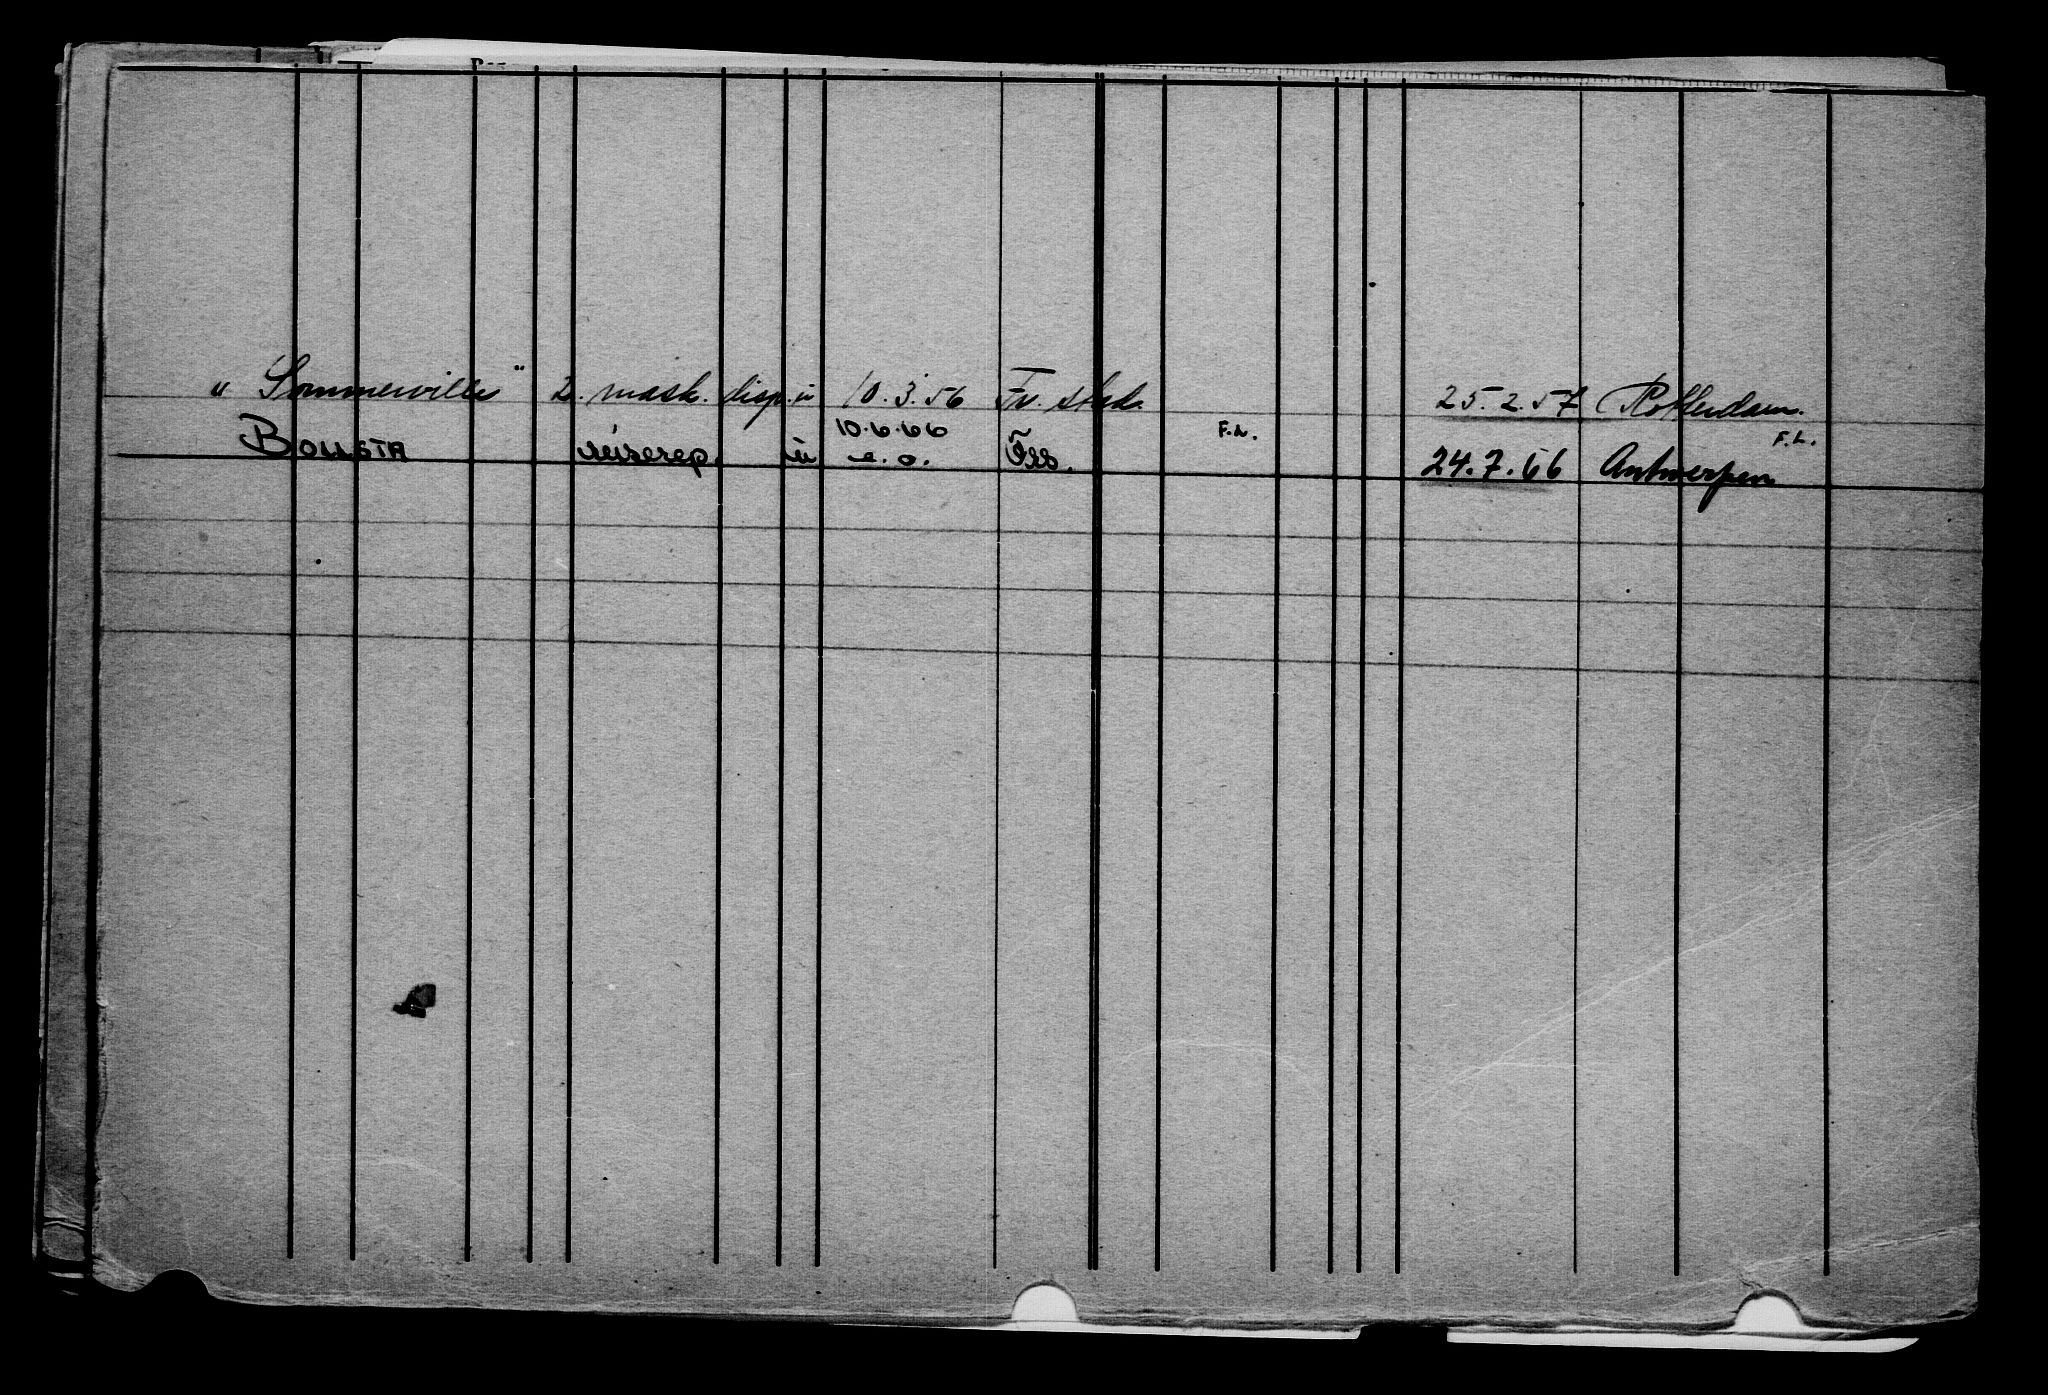 „ Sommerville " 2. mask. disp. u 10.3.56 Fr. stad. 25.2.57 Rotterdam.
10.6.66 F.L. F.L.
BOLLSTA reiserep. u e.o. 24.7.66 Antwerpen